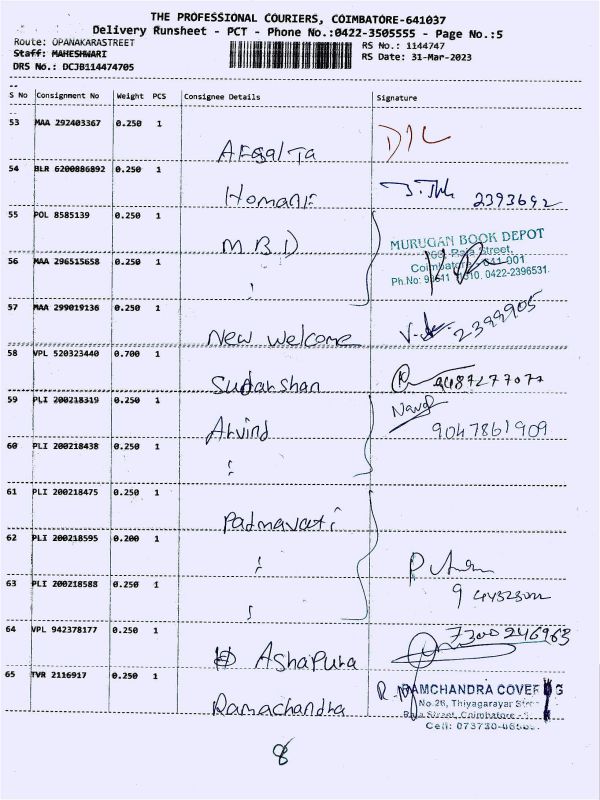 THE PROFESSIONAL COURIERS, COIMBATORE-641037
Delivery Runsheet - PCT - Phone No.:0422-3505555 - Page No.:5
Route: OPANAKARASTREET
RS No.: 1144747
Staff: MAHESHWARI
RS Date: 31-Mar-2023
DRS No.: DCJB114474705
S No Consignment No Weight PCS Consignee Details Signature
53 MAA 292403367 0.250 1
54 BLR 6200886892 0.250 1
Homani 2393692
55 POL 8585139 0.250 1
M.B.D
MURUGAN BOOK DEPOT
Raja Street,
56 MAA 296515658 0.250 1
Ph.No: 0422-2396531
57 MAA 299019136 0.250 1
New Welcome 2399905
58 VPL 520323440 0.700 1
Sudarshan 9487277077
59 PLI 200218319 0.250 1
Arvind 9047861909
60 PLI 200218438 0.250 1
61 PLI 200218475 0.250 1
Padmavati
62 PLI 200218595 0.200 1
63 PLI 200218588 0.250 1
64 VPL 942378177 0.250 1
7300246963
Ashapura
65 TVR 2116917 0.250 1
RAMCHANDRA
No.26, Thiyagarayar
Ramachandra
Raja Street, Coimbatore
8